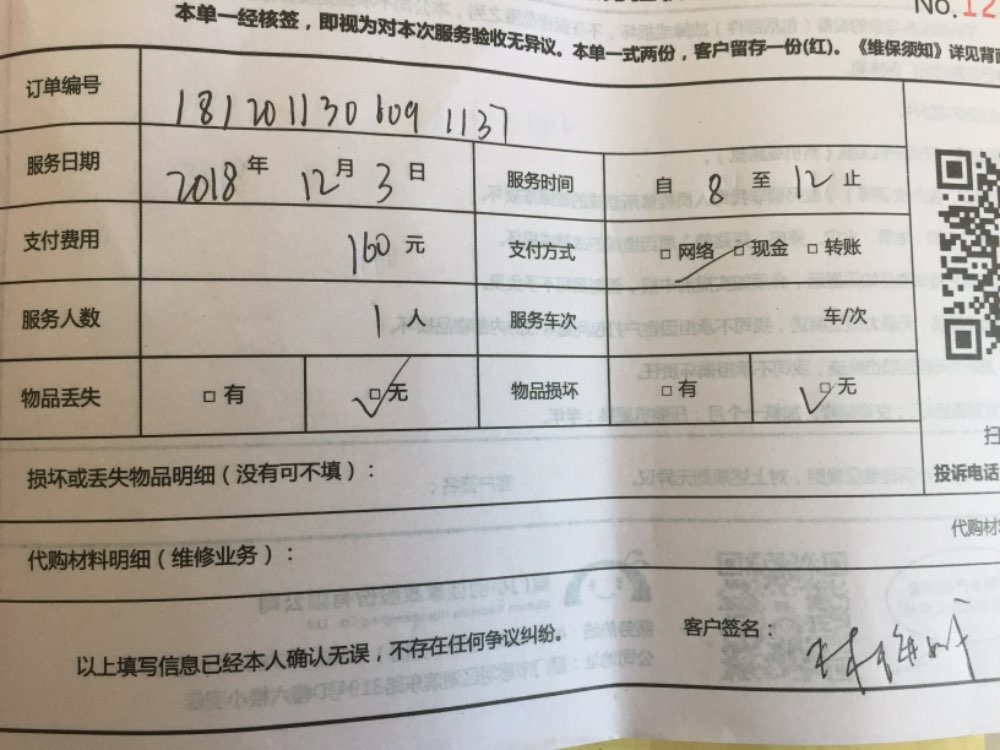 No.12
本单一经核签，即视为对本次服务验收无异议。本单一式两份，客户留存一份(红)。《维保须知》详见背面
订单编号 181201130609113
服务日期 2018年 12月 3日 服务时间 自 8 至 12 止
支付费用 160元 支付方式 □网络 □现金 □转账
服务人数 1人 服务车次 车/次
物品丢失 □有 □无 物品损坏 □有 □无
扫
损坏或丢失物品明细（没有可不填）：
投诉电话
代购材
代购材料明细（维修业务）：
客户签名：
以上填写信息已经本人确认无误，不存在任何争议纠纷。